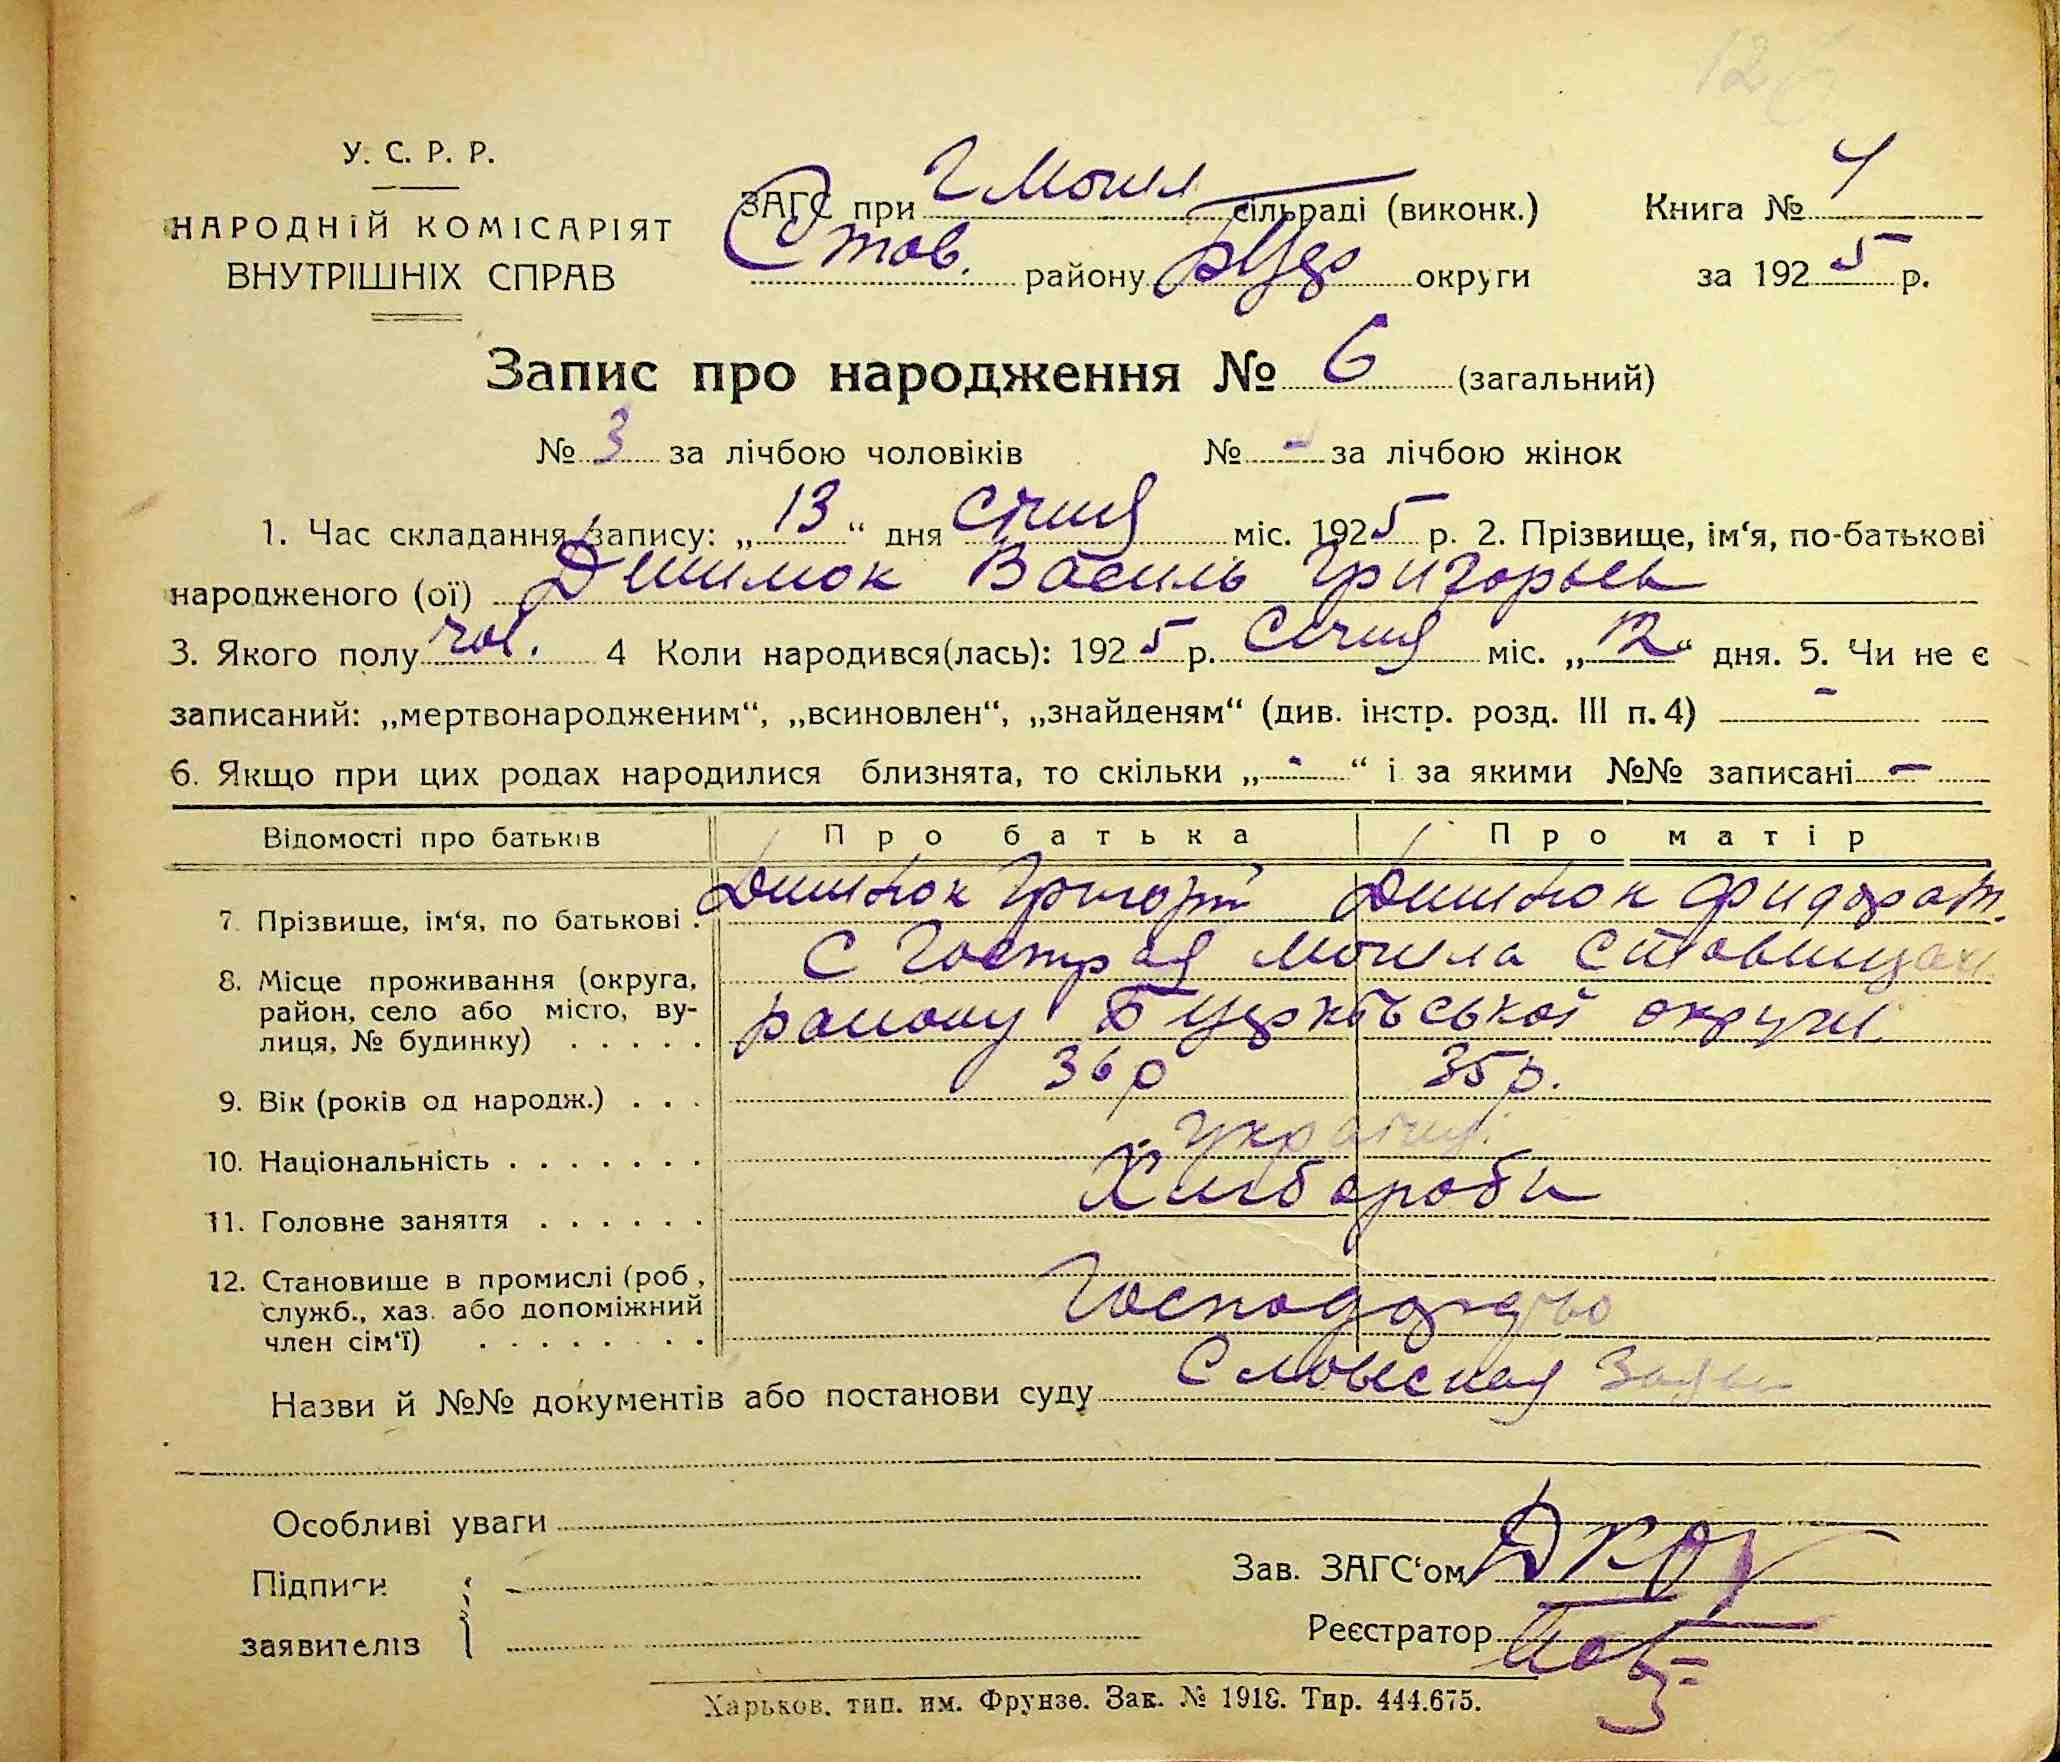 У. С. Р. Р.
НАРОДНІЙ КОМІСАРІЯТ
ВНУТРІШНІХ СПРАВ
ЗАГС при Г Могил сільраді (виконк.)
Книга №
Став. району БЦер округи
за 1925 р.
Запис про народження № 6 (загальний)
№ 3 за лічбою чоловіків № - за лічбою жінок
1. Час складання запису: „13“ дня Січня міс. 1925 р. 2. Прізвище, ім‘я, по-батькові
народженого (ої) Василь Григорьев
3. Якого полу чол. 4 Коли народився(лась): 1925 р. Січня міс. „12“ дня. 5. Чи не є
записаний: „мертвонародженим“, „всиновлен“, „знайденям“ (див. інстр. розд. III п. 4) -
6. Якщо при цих родах народилися близнята, то скільки „-“ і за якими №№ записані -
Відомості про батьків Про батька Про матір
7. Прізвище, ім‘я, по батькові . Григорій
8. Місце проживання (округа,
район, село або місто, ву-
лиця, № будинку) . . . . .
С Гострая Могила
району БЦерківської округи
9. Вік (років од народж.) . . . 36 р 35 р.
10. Національність . . . . . . . Українці
11. Головне заняття . . . . . . Хлібороби
12. Становище в промислі (роб,
служб., хаз. або допоміжний
член сім‘ї) . . . . . . . .
Назви й №№ документів або постанови суду Словесная Заява
Особливі уваги
Підписи
заявителів
Зав. ЗАГС‘ом
Реєстратор
Харьков. тип. им. Фрунзе. Зак. № 1918. Тир. 444.675.